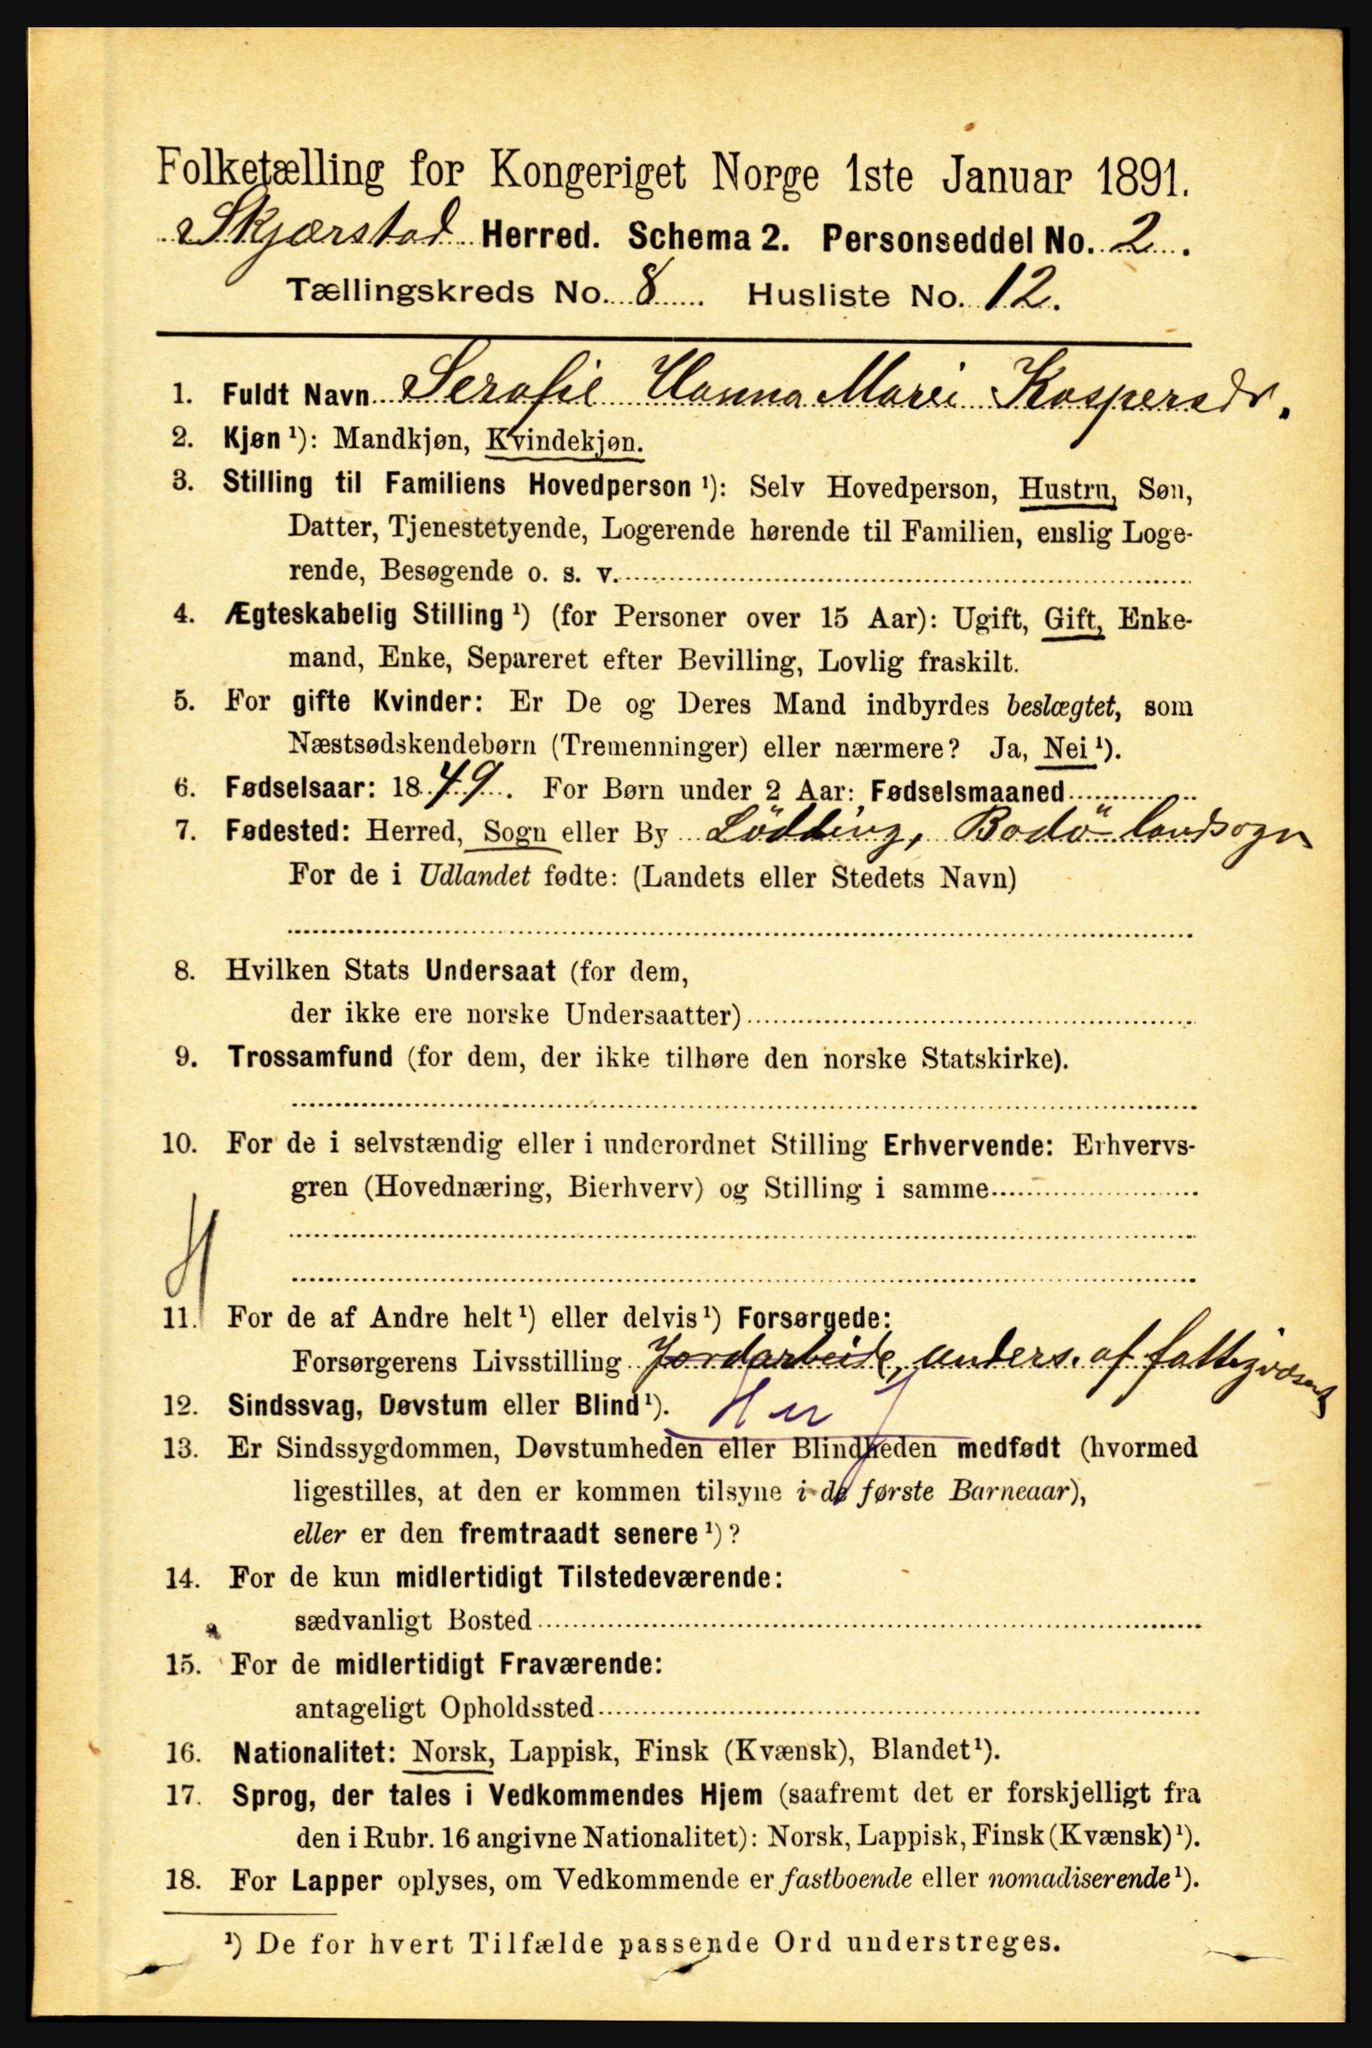 Folketælling for Kongeriget Norge 1ste Januar 1891.
Skjærstad Herred. Schema 2. Personseddel No. 2.
Tællingskreds No. 8 Husliste No. 12.
1. Fuldt Navn Serafie Hanna Marie Kaspersdr.
2. Kjøn ¹): Mandkjøn, Kvindekjøn.
3. Stilling til Familiens Hovedperson ¹): Selv Hovedperson, Hustru, Søn,
Datter, Tjenestetyende, Logerende hørende til Familien, enslig Loge-
rende, Besøgende o. s. v.
4. Ægteskabelig Stilling ¹) (for Personer over 15 Aar): Ugift, Gift, Enke-
mand, Enke, Separeret efter Bevilling, Lovlig fraskilt.
5. For gifte Kvinder: Er De og Deres Mand indbyrdes beslægtet, som
Næstsødskendebørn (Tremenninger) eller nærmere? Ja, Nei ¹).
6. Fødselsaar: 1849. For Børn under 2 Aar: Fødselsmaaned
7. Fødested: Herred, Sogn eller By Lödding, Bodö landsogn
For de i Udlandet fødte: (Landets eller Stedets Navn)
8. Hvilken Stats Undersaat (for dem,
der ikke ere norske Undersaatter)
9. Trossamfund (for dem, der ikke tilhøre den norske Statskirke).
10. For de i selvstændig eller i underordnet Stilling Erhvervende: Erhvervs-
gren (Hovednæring, Bierhverv) og Stilling i samme
H
11. For de af Andre helt ¹) eller delvis ¹) Forsørgede:
Forsørgerens Livsstilling Jordarbeide, unders. af fattigvæsenet
12. Sindssvag, Døvstum eller Blind ¹).
13. Er Sindssygdommen, Døvstumheden eller Blindheden medfødt (hvormed
ligestilles, at den er kommen tilsyne i de første Barneaar),
eller er den fremtraadt senere ¹)?
14. For de kun midlertidigt Tilstedeværende:
sædvanligt Bosted
15. For de midlertidigt Fraværende:
antageligt Opholdssted
16. Nationalitet: Norsk, Lappisk, Finsk (Kvænsk), Blandet ¹).
17. Sprog, der tales i Vedkommendes Hjem (saafremt det er forskjelligt fra
den i Rubr. 16 angivne Nationalitet): Norsk, Lappisk, Finsk (Kvænsk) ¹).
18. For Lapper oplyses, om Vedkommende er fastboende eller nomadiserende ¹).
¹) De for hvert Tilfælde passende Ord understreges.